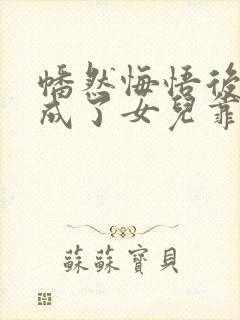 幡然悔悟後
成了女兒靠
蘇蘇寶貝